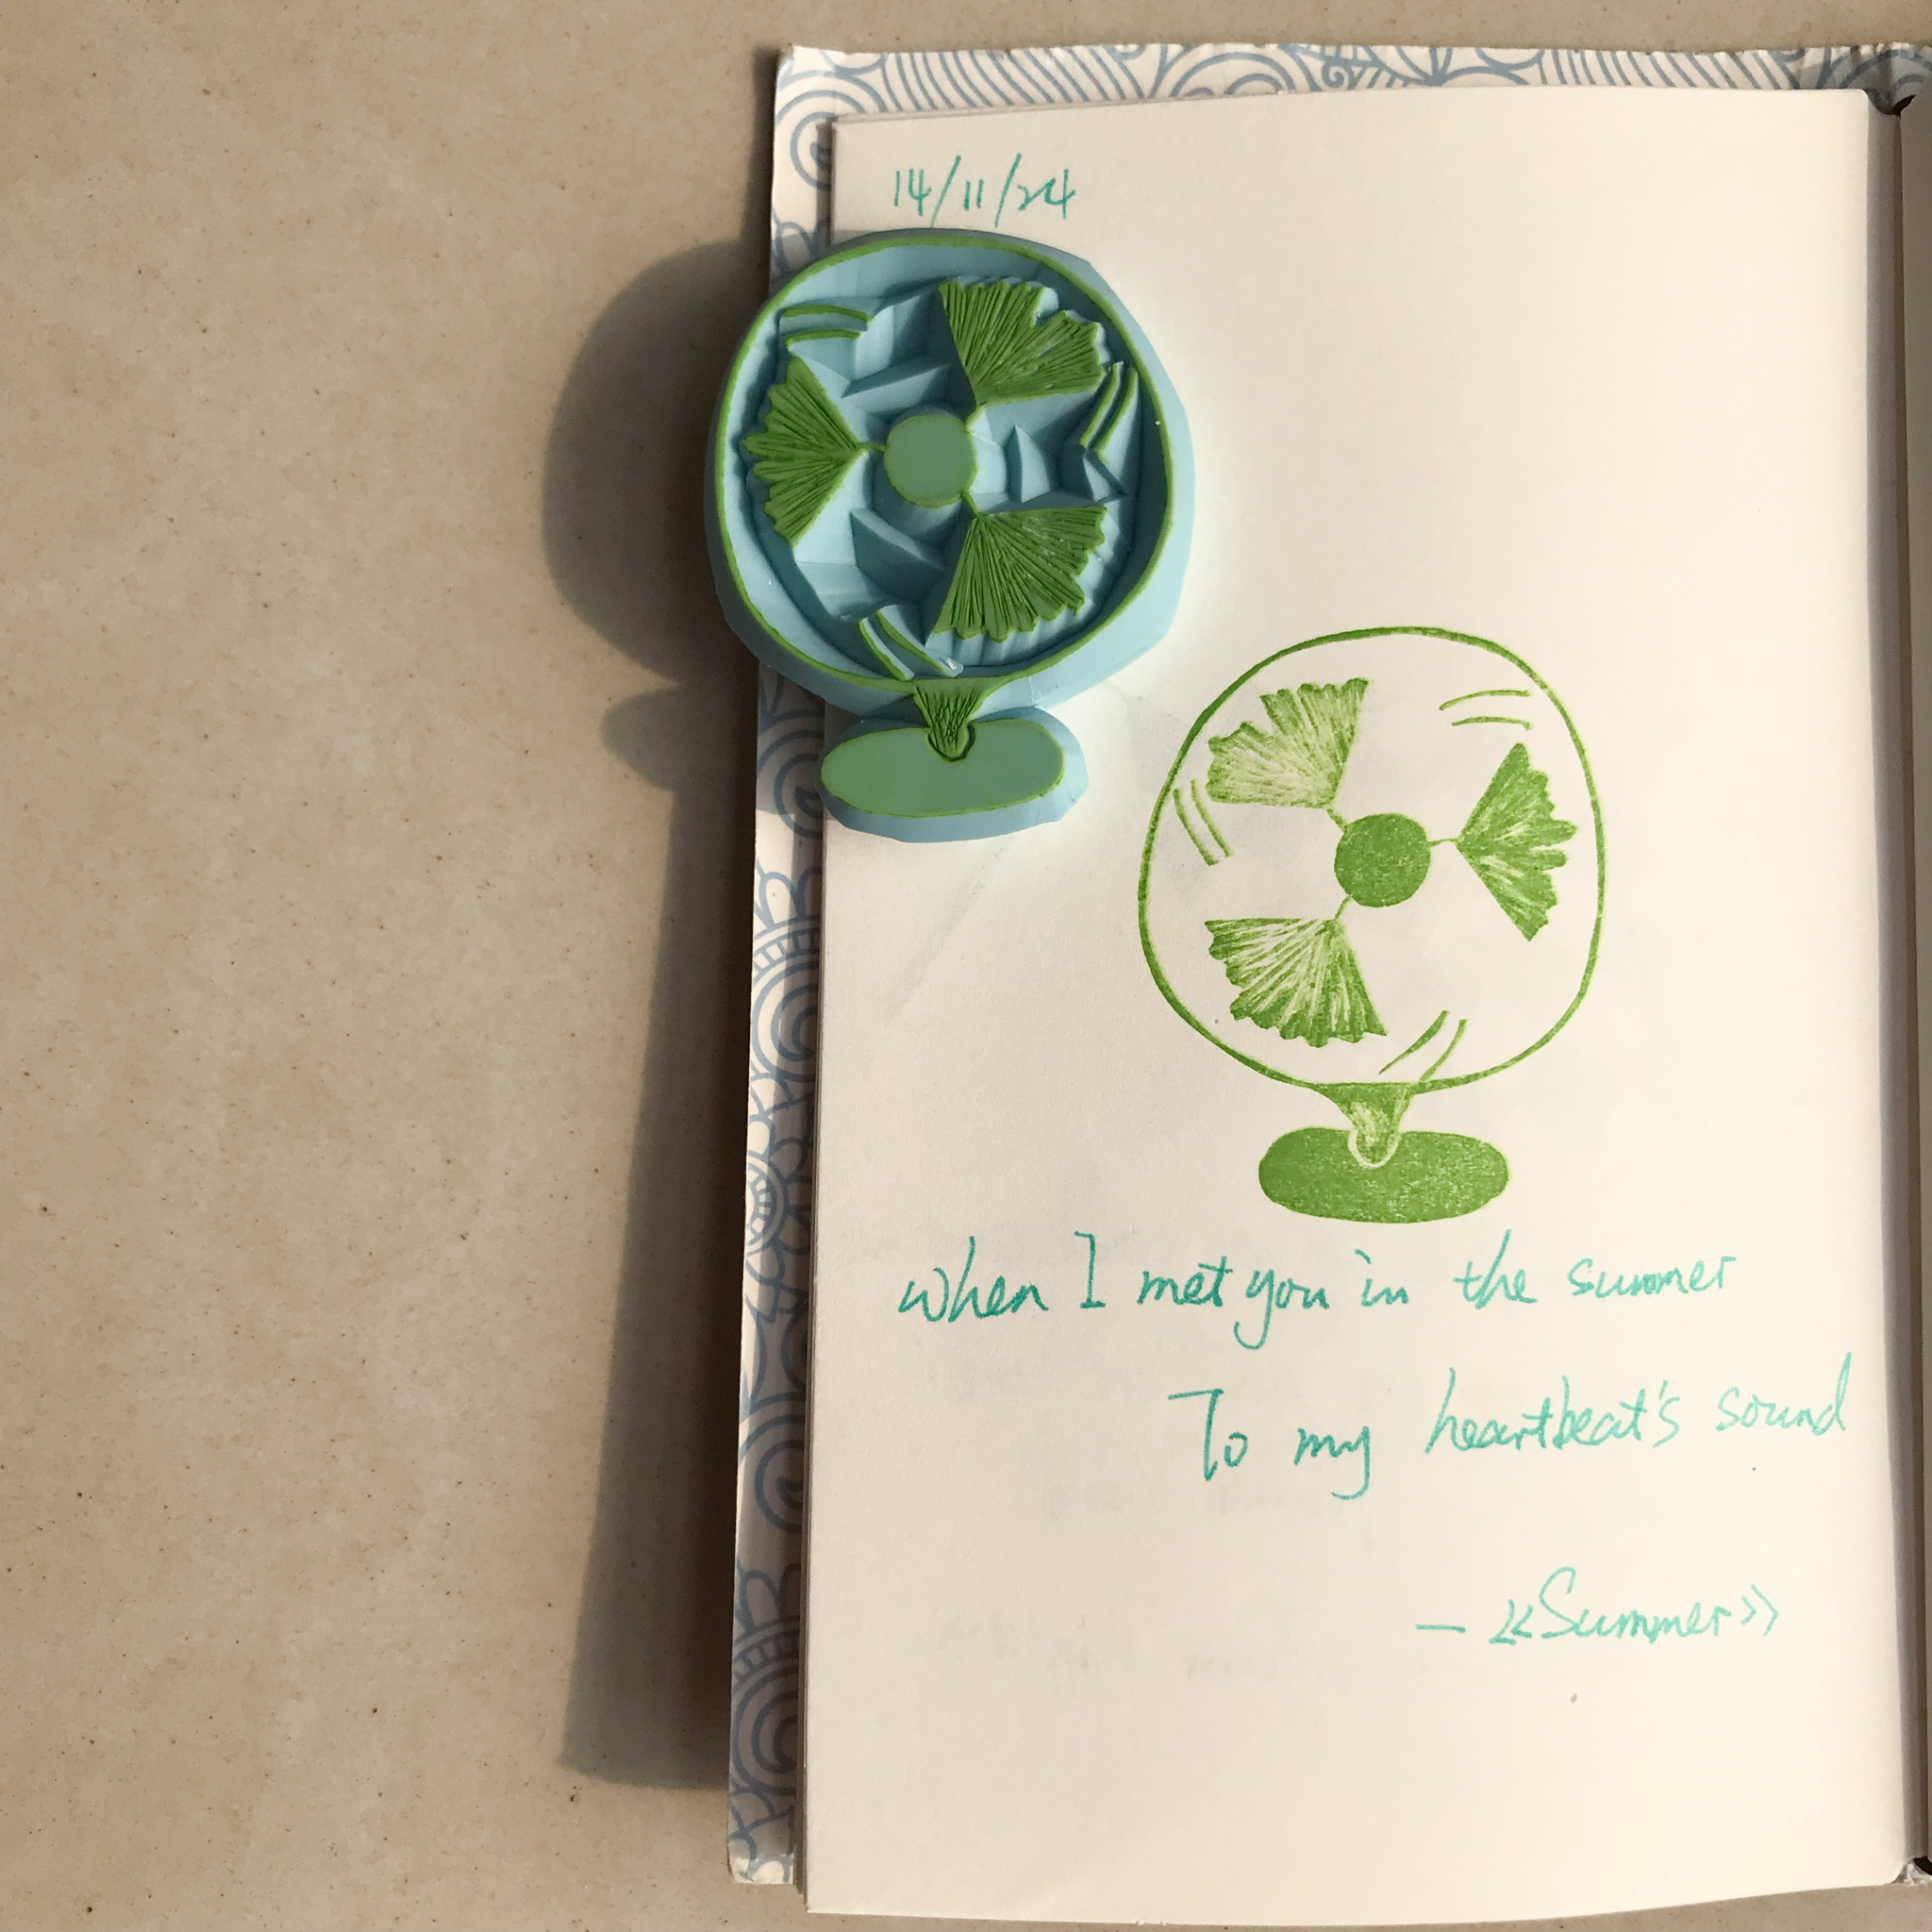 14/11/24
when I met you in the summer
To my heartbeat's sound
— 《Summer》